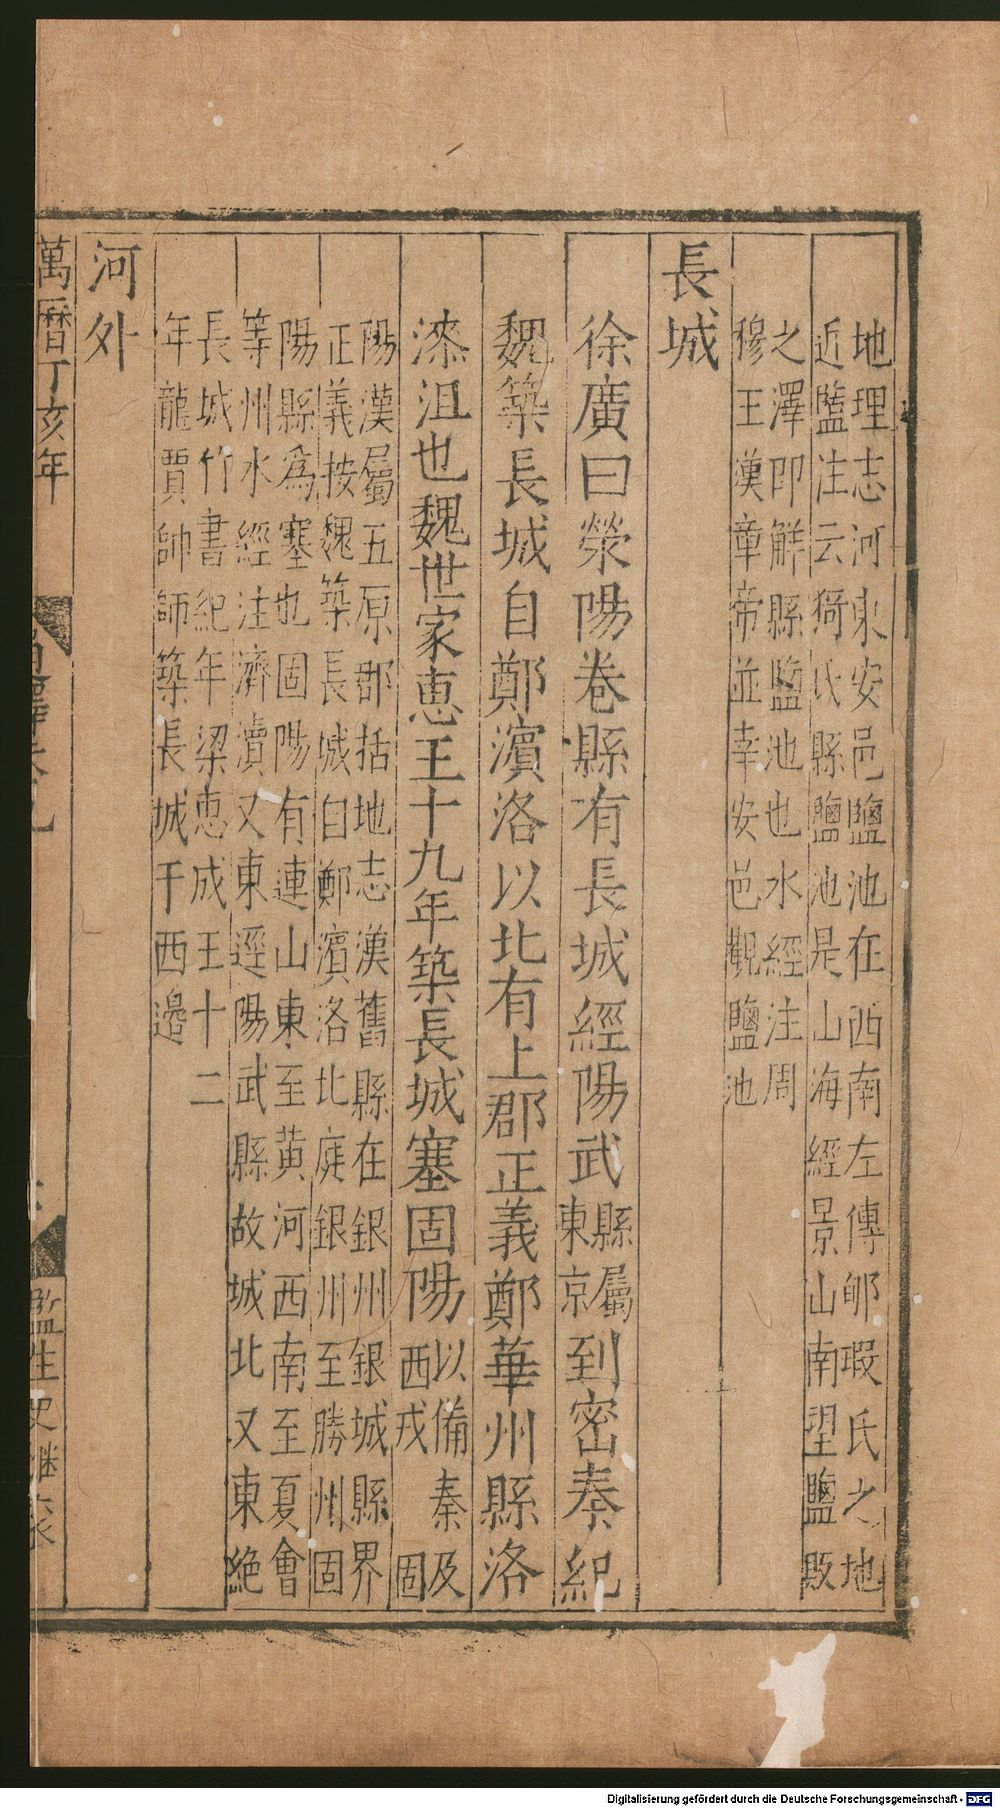 地理志河東安邑鹽池在西南左傳郇瑕氏之地
近鹽注云猗氏縣鹽池是山海經景山南望鹽販
之澤即解縣鹽池也水經注周
穆王漢章帝並幸安邑觀鹽池
長城
徐廣曰滎陽卷縣有長城經陽武縣屬東京到密秦紀
魏築長城自鄭濱洛以北有上郡正義鄭華州縣洛
漆沮也魏世家惠王十九年築長城塞固陽以備秦及西戎固
陽漢屬五原郡括地志漢舊縣在銀州銀城縣界
正義按魏築長城自鄭濱洛北庭銀州至勝州固
陽縣為塞也固陽有連山東至黃河西南至夏會
等州水經注濟瀆又東逕陽武縣故城北又東絶
長城竹書紀年梁惠成王十二
年龍賈帥師築長城于西邊
河外
萬曆丁亥年
監生史繼
Digitalisierung gefördert durch die Deutsche Forschungsgemeinschaft - DFG